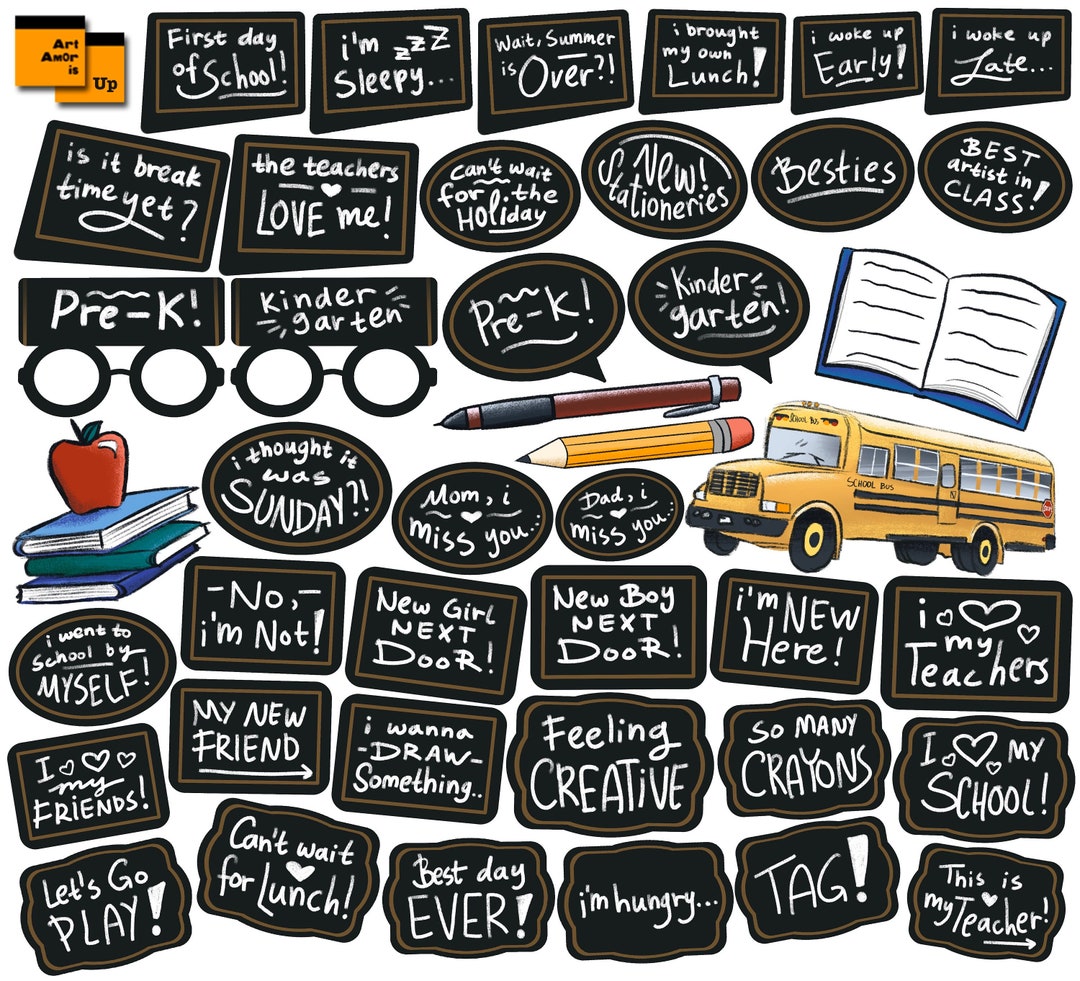 Art
AmOr
is
Up
First day
of School!
i'm zzZ
Sleepy...
Wait, Summer
is Over?!
i brought
my own
Lunch!
i woke up
Early!
i woke up
Late...
is it break
time yet?
the teachers
LOVE me!
Can't wait
for the
HOLiday
New!
Stationeries
Besties
BEST
artist in
CLASS!
Pre-K!
Kinder
garten
Pre-K!
Kinder
garten!
SCHOOL BUS
SCHOOL BUS
STOP
i thought it
was
SUNDAY?!
Mom, i
miss you...
Dad, i
miss you...
i went to
School by
MYSELF!
-No,-
i'm Not!
New Girl
NEXT
DooR!
New Boy
NEXT
DooR!
i'm NEW
Here!
i
my
Teachers
I
my
FRiENDS!
MY NEW
FRIEND
i wanna
-DRAW-
Something..
Feeling
CREATiVE
SO MANY
CRAYONS
I MY
SCHOOL!
Let's Go
PLAY!
Can't wait
for Lunch!
Best day
EVER!
i'm hungry...
TAG!
This is
my Teacher!